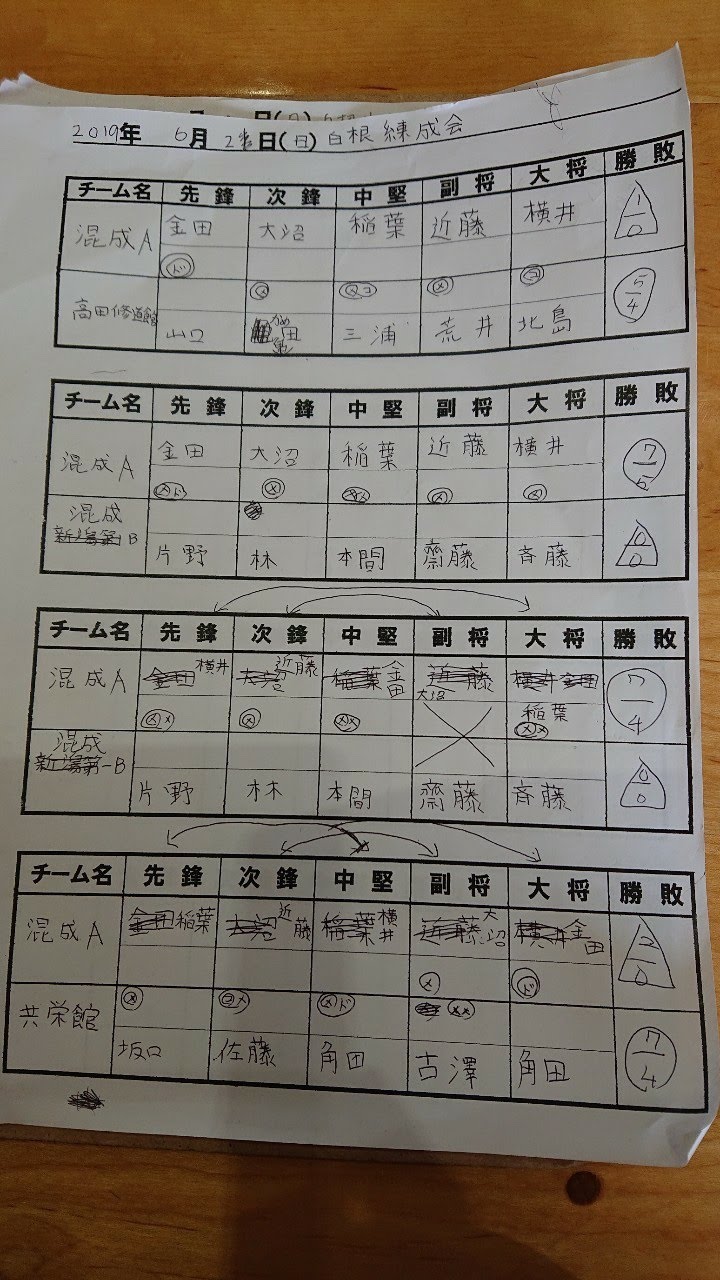 2019年 6月 2日(日) 白根練成会
チーム名 先鋒 次鋒 中堅 副将 大将 勝敗
混成A 金田 大沼 稲葉 近藤 横井 1/0
ド
メ メコ メ コ 5/4
高田修道館 山口 かめ 亀田 三浦 荒井 北島
チーム名 先鋒 次鋒 中堅 副将 大将 勝敗
混成A 金田 大沼 稲葉 近藤 横井 7/5
メド メ メ メ
混成 B 0/0
片野 林 本間 齋藤 斉藤
チーム名 先鋒 次鋒 中堅 副将 大将 勝敗
混成A 横井 近藤 金田 大沼 稲葉 7/4
メメ メ メメ メメ
混成 新潟第一B 0/0
片野 林 本間 齋藤 斉藤
チーム名 先鋒 次鋒 中堅 副将 大将 勝敗
混成A 稲葉 近藤 横井 大沼 金田 /0
メ ド
共栄館 メ コメ メド メメ 7/4
坂口 佐藤 角田 古澤 角田